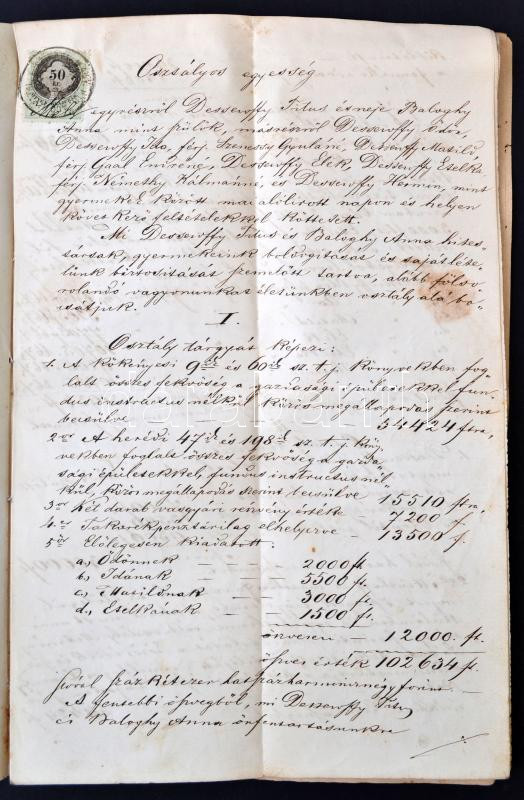 50
Osztályos egyesség
egyrészről Dessewffy Titus és neje Baloghy
Anna mint szülők, másrészről Dessewffy Ödön,
Dessewffy Ida, férj. Szenessy Gyuláné, Dessewffy Matild
férj. Gaal Emiréné, Dessewffy Elek, Dessewffy Etelka
férj. Némethy Kálmánné, és Dessewffy Hermin, mint
gyermekek között mai alólirott napon és helyen
következő feltételekkel köttetett.
Mi Dessewffy Titus és Baloghy Anna hites-
társak, gyermekeink boldogitását és saját léte-
lünk biztositását szemelőtt tartva, alább fölso-
rolandó vagyonunkat életünkben osztály alá bo-
csátjuk.
I.
Osztály tárgyát képezi:
1. A kökényesi 9 és 60 sz. t. j. könyvekben fog-
lalt összes fekvőség a gazdasági épületekkel fun-
dus instructus nélkül közös megállapodás szerint
becsülve 54424 ftra,
2 or A herédi 47 és 198 sz. t. j. köny-
vekben foglalt összes fekvőség a gazda-
sági épületekkel, fundus instructus nél-
kül, közös megállapodás szerint becsülve 15510 ftra.
3 or két darab vasgyári részvény értéke 7200 f.
4 er Takarékpénztárilag elhelyezve — 13500 f.
5 ör Előlegesen kiadatott.
a, Ödönnek — — — 2000 ft.
b, Idának — — — 5500 ft.
c, Matildnak — — 3000 ft.
d, Etelkának — — 1500 ft.
összesen — 12000. ft.
összes érték 102634 ft.
szóval száz kétezer hatszázharmincnégy forint.
A fentebbi összegből, mi Dessewffy Titus
és Baloghy Anna önfentartásunkra